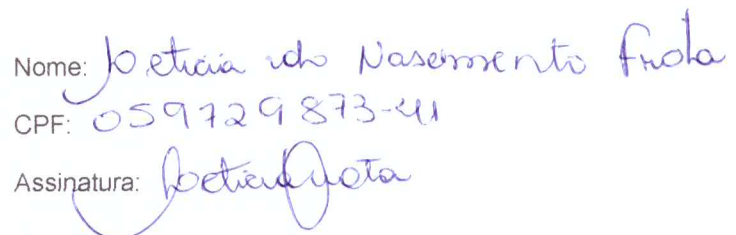 Nome: Leticia do Nascimento Frota
CPF: 059729873-41
Assinatura: Leticia Frota